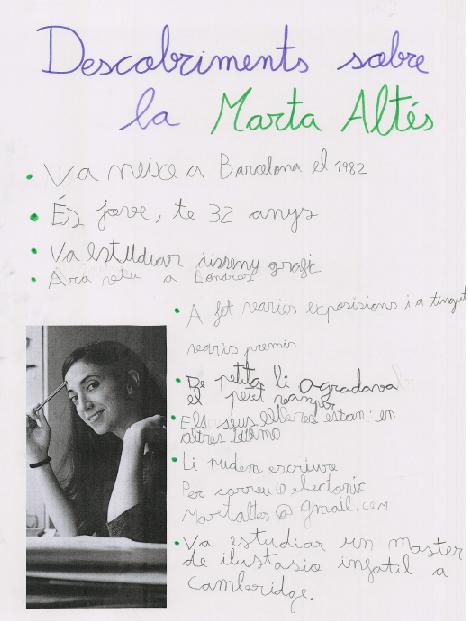 Descobriments sobre
la Marta Altés
Va neixe a Barcelona el 1982
És jove, te 32 anys
Va estudiar disseny grafi
Ara a Londres
A fet exposisions i a tingut
premis
De petita li agradava
el petit
Els seus llibres estan en
altres
Li escriure
Per correu electonic
Martaltes@gmail.com
Va estudiar un master
de ilustasio infatil a
Cambridge.